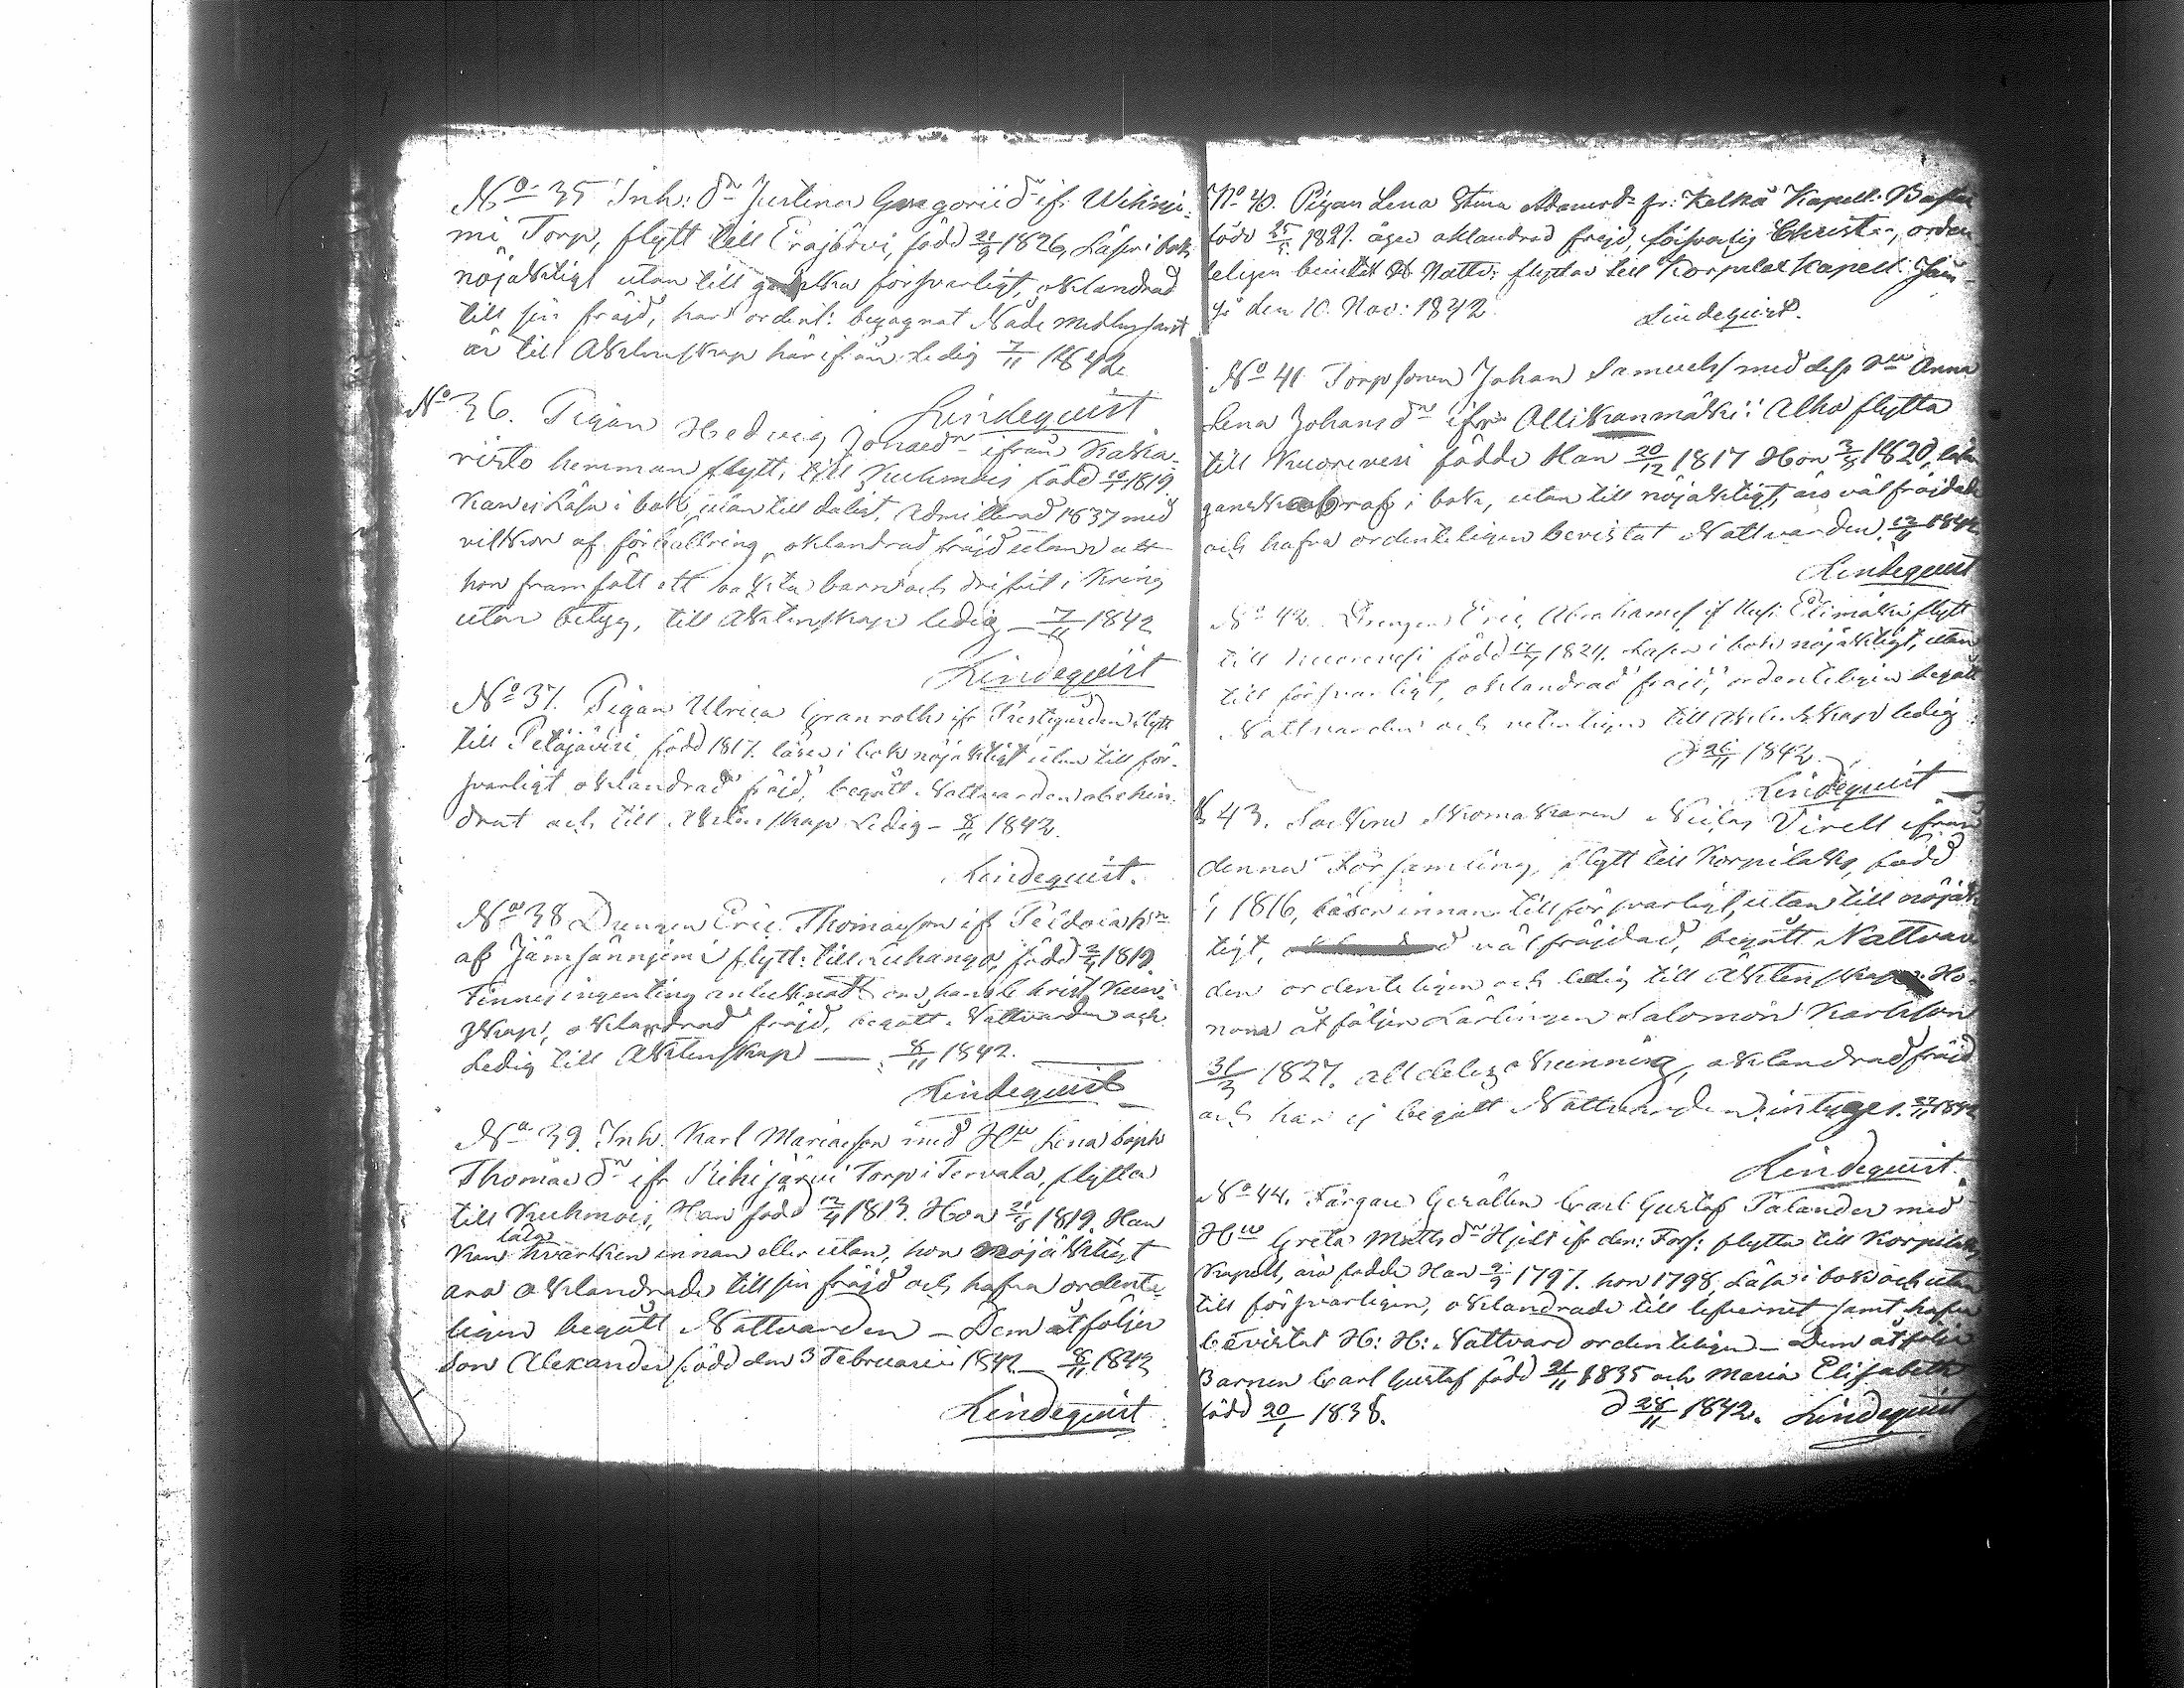 No 35 Inh: dr Justina Gregoriid ifr. Wihini-
mi Torp, flytt till Erajärvi, född 21/9 1826, Läser i bok
nöjaktligt utan till ganska försvarligt, oklandrad
till sin fräjd, har ordentl: begagnat Nådemedlen samt
är till Äktenskap härifrån Ledig 7/11 1842
Lindequist
No 36. Pigan Hedvig Jonaedr ifrån Kaka-
risto hemman flytt. till Kuhmois född 1819
Kan ej Läsa i bok, utan till dåligt. Admitterad 1837 med
villkor af förhållring, oklandrad fräjd utom att
hon framfött ett oäkta barn och drifvit i Kring
utan betyg, till Äktenskap ledig 7/11 1842
Lindequist
No 37. Pigan Ulrica Granroth ifr Prestgården flytt
till Petäjävesi född 1817. läser i bok nöjaktligt utan till för-
svarligt oklandrad fräjd, begått Nattvarden obehin-
drat och till Äktenskap Ledig - 8/11 1842.
Lindequist.
No 38 Drengen Eric Thomasson ifr
af Jämsänniemi flytt: till Luhango, född 1819
Finnes ingenting anteknadt om hans Christ. Kun-
skap, oklandrad fräjd, begått Nattvarden och
Ledig till Äktenskap — 8/11 1842.
Lindequist
No 39. Inh. Karl Mariaeson med Hu Lena Soph
Thomae dr ifr Rihijärvi Torp i Tervala, flytta
till Kuhmois, Han född 12/4 1813. Hon 1819. Han
Kan läsa hvarken innan eller utan, hon nöjäktligt
äro oklandrade till sin fräjd och hafva ordente-
ligen begått Nattvarden — Dem åtföljer
Son Alexander född den 3 Februarii 1842 8/11 1842
Lindequist
No 40. Pigan Lena Stina Adamsdr fr: Kelkä Kapell:
född 1821. äger oklandrad frejd, försvarlig Christ., orden-
teligen bevistat Nattv: flyttar till Korpilax Kapell. Jäm-
sä den 10. Nov: 1842.
Lindequist.
No 41 Torpsonen Johan Samuels med dess Hu Anna
Lena Johansdr ifrån Allikanmäki: Alho flytta
till Kuorevesi födde Han 20/12 1817 Hon 1820, läsa
ganska bra i bok, utan till nöjaktligt, äro väl fräjdade
och hafva ordenteligen bevistat Nattvarden. 12/11 1842
Lindequist
No 42. Drengen Eric Abrahamss if Elimäki flytt
till Kuorevesi född 1824. Läser i bok nöjaktligt, utan
till försvarligt, oklandrad fräjd, ordenteligen begått
Nattvarden och veterligen till Äktenskap ledig
d 26/11 1842.
Lindequist
43. Sockne Skomakaren Niclas Virell ifrån
denna Församling, flytt till Korpilaks, född
1816, läser innan till försvarligt, utan till nöjak-
tigt, väl fräjdad, begått Nattvar-
den ordenteligen och ledig till Äktenskap. Ho-
nom åtföljer Lärlingen Salomon Karlsson
31/3 1827. alldeles okunnig, oklandrad fräjd
och har ej begått Nattvarden, intygas. 27/11 1842
Lindequist.
No 44. Färgare Gesällen Carl Gustaf Talander med
Hu Greta Matts dr Hjelt ifr den: Förs: flytta till Korpilaks
Kapell, äro födde Han 1797. hon 1798, Läsa i bok och utan
till försvarligen, oklandrade till lefvernet samt hafva
bevistat H: H: Nattvard ordenteligen — Dem åtfölja
Barnen Carl Gustaf född 21/11 1835 och Maria Elisabeth
född 20/1 1838. d 28/11 1842. Lindequist